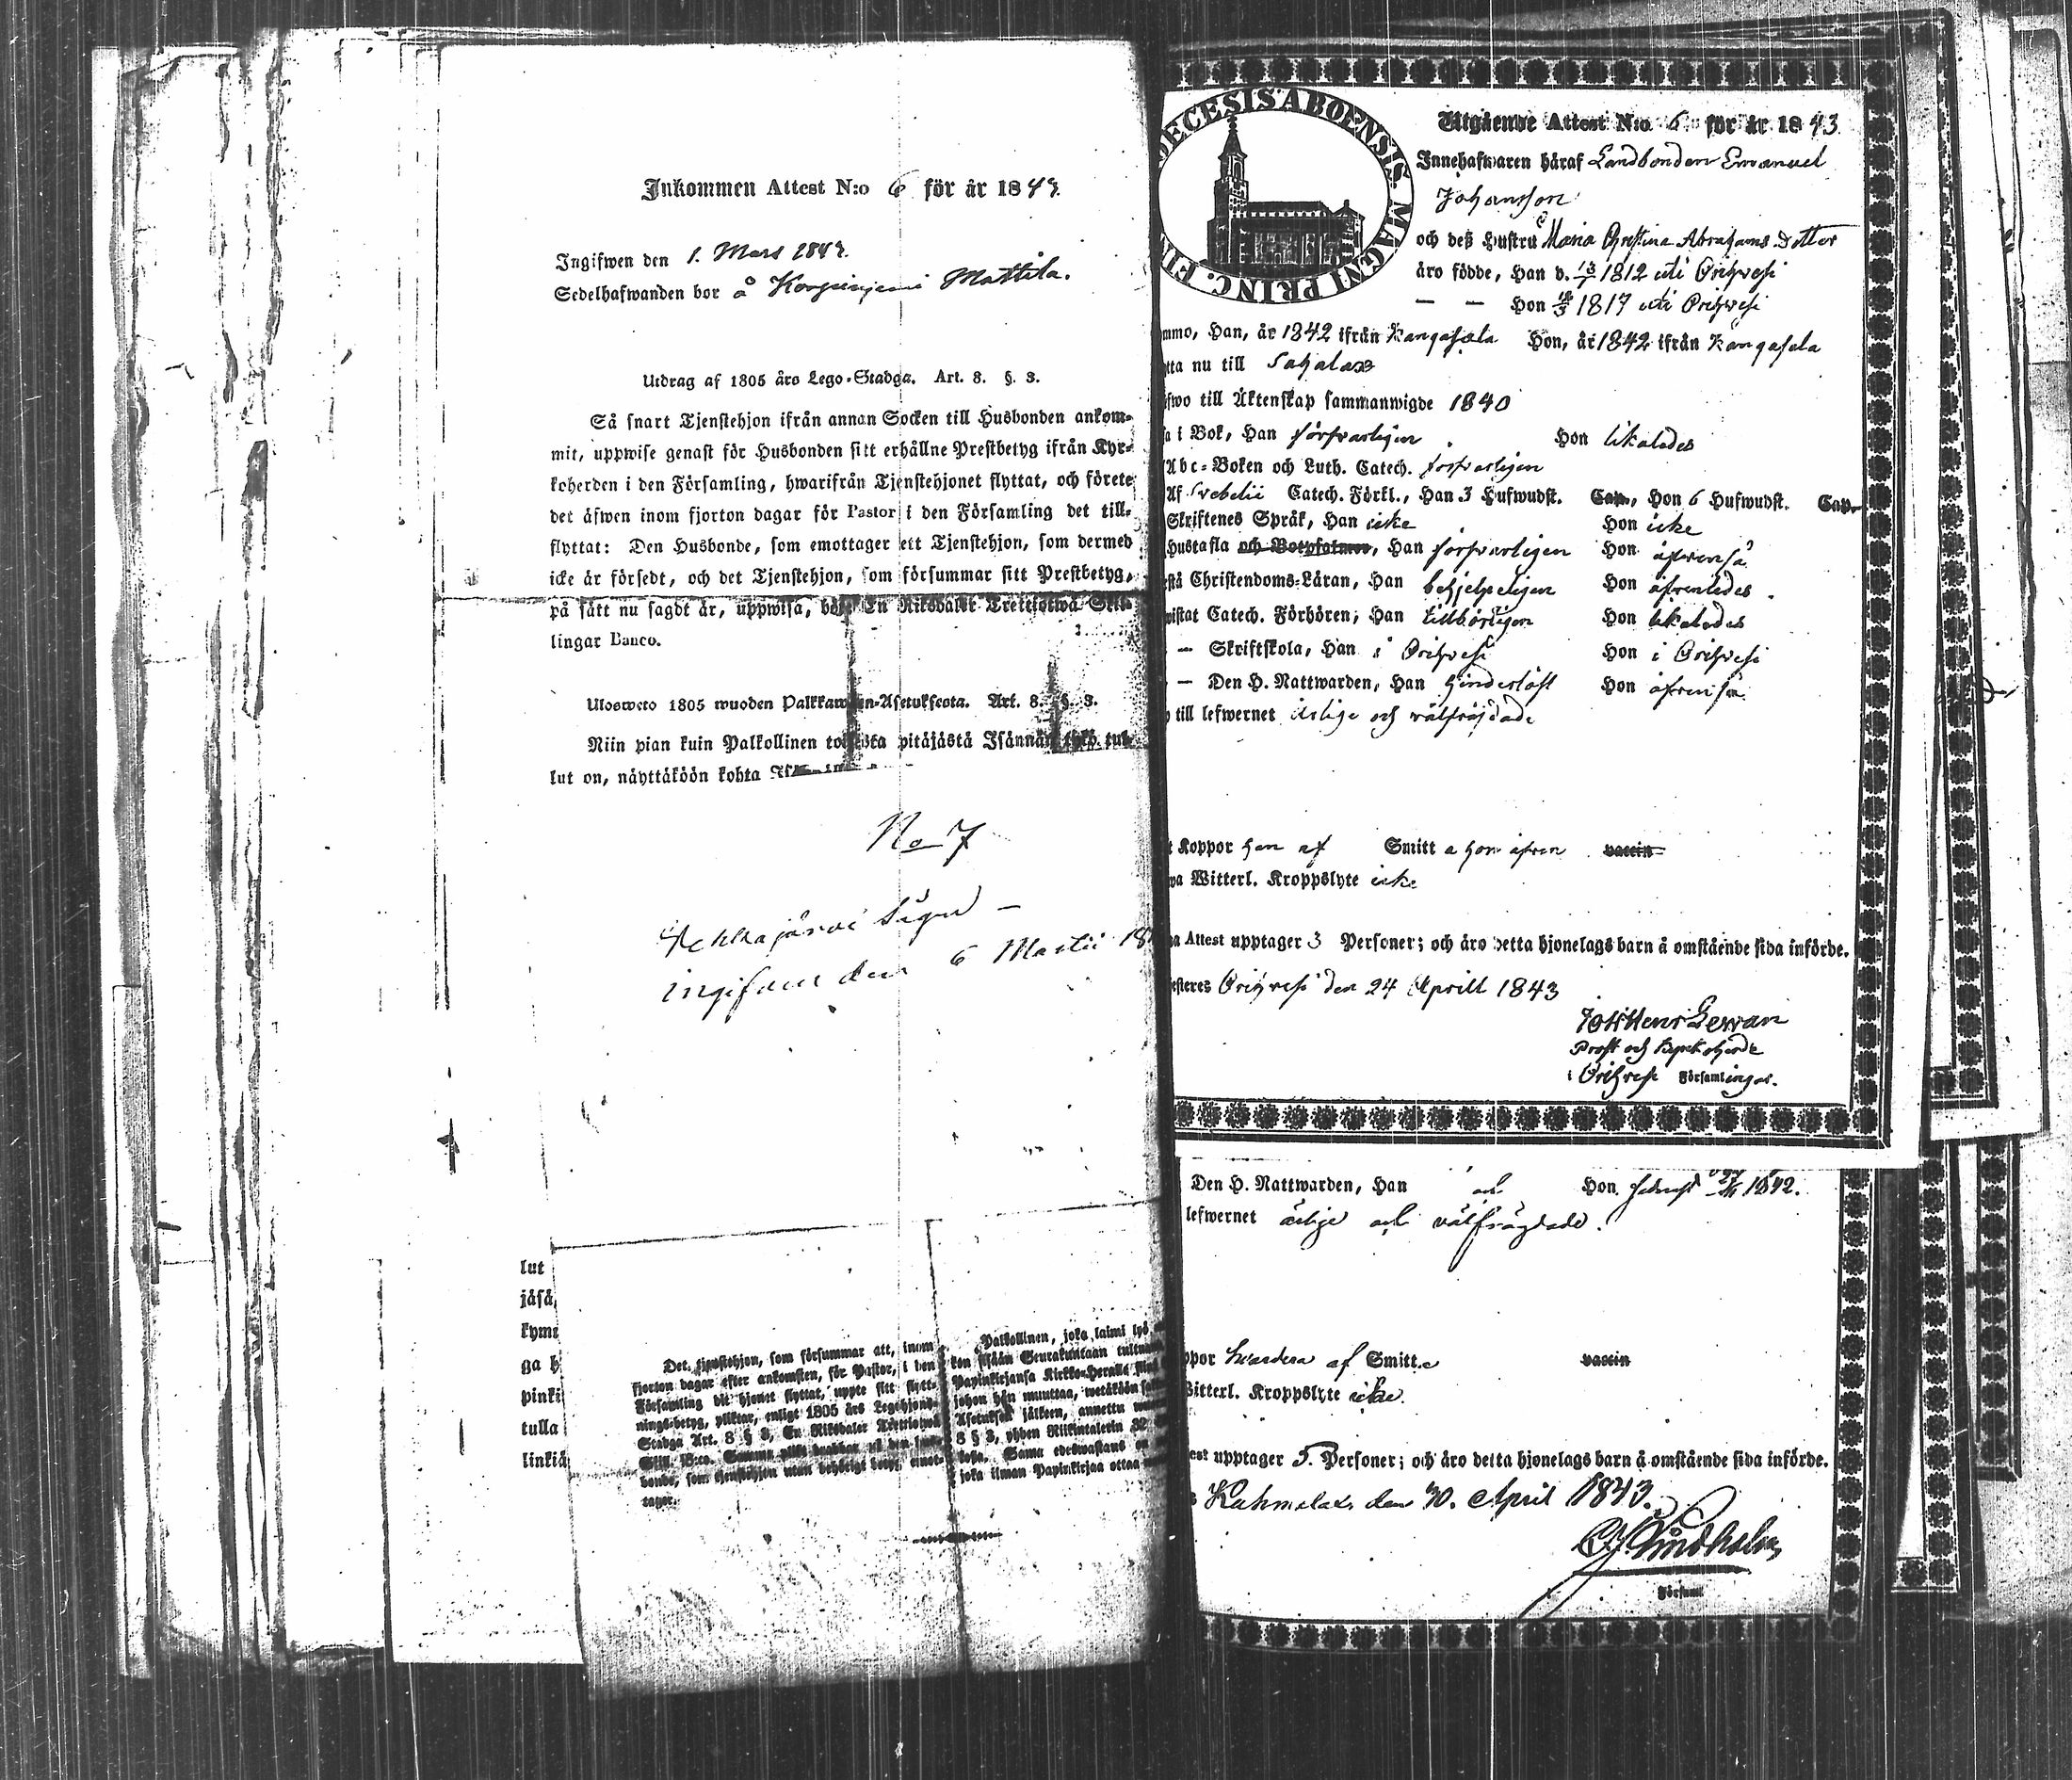 Inkommen Attest N:o 6 för år 1843.
Ingifwen den 1. Mars 1843.
Sedelhafwanden bor å Mattila.
Utdrag af 1805 års Lego-Stadga. Art. 8. §. 3.
Så snart Tjenstehjon ifrån annan Socken till Husbonden ankom-
mit, uppwise genast för Husbonden sitt erhållne Prestbetyg ifrån Kyr-
koherden i den Församling, hwarifrån Tjenstehjonet flyttat, och förete
det äfwen inom fjorton dagar för Pastor i den Församling det till-
flyttat: Den Husbonde, som emottager ett Tjenstehjon, som dermed
icke är försedt, och det Tjenstehjon, som försummar sitt Prestbetyg,
på sätt nu sagdt är, uppwisa, böte En Riksdaler Trettiotwå Skil-
lingar Banco.
Ulosweto 1805 wuoden Palkkawäen-Asetuksesta. Art. 8. §. 3.
Niin pian kuin Palkollinen toisesta pitäjästä Isännän tykö tul-
lut on, näyttäköön kohta
No 7
ingifven den 6 Martii 18
lut
jäsä,
kymm
ga h
pinki
tulla
linkiä
Det tjenstehjon, som försummar att, inom
fjorton dagar efter ankomsten, för Pastor, i den
Församling dit hjonet flyttat, uppte sitt flytt-
nings-betyg, pliktar, enligt 1805 års Legohjons-
Stadga Art. 8 § 3, En Riksdaler Trettiotwå
Skill. B:co. Samma plikt
bonde, som tjenstehjon utan behörigt betyg emot-
tager.
Palkollinen, joka laimi lyö
kon sisään Seurakuntaan tultuan
Papinkirjansa Kirkko-Herralle siinä
johon hän muuttaa, wetäköön sa
Asetuksen jälkeen, annettu
8 § 3, yhden Riikintalerin 32
Sama edeswastaus on
joka ilman Papinkirjaa ottaa
DIOECESIS ABOENSIS MAGNI PRINC. FIN
Utgående Attest N:o 6 för år 1843
Innehafwaren häraf Landbonden Emanuel
Johansson
och deß Hustru Maria Christina Abrahams Dotter
äro födde, Han d. 13/ 1812 uti Orihvesi
— — Hon 1817 uti Orihvesi
ommo, Han, år 1842 ifrån Kangasala Hon, år 1842 ifrån Kangasala
tta nu till Sahalax
efwo till Äktenskap sammanwigde 1840
sa i Bok, Han försvarligen. Hon likaledes
Abc-Boken och Luth. Catech. försvarligen
Af Svebelii Catech. Förkl., Han 3 Hufwudst. Cap., Hon 6 Hufwudst. Cap.
Skriftenes Språk, Han icke Hon icke
Hustafla och Botpsalmer, Han försvarligen Hon äfvenså
stå Christendoms-Läran, Han behjelpeligen Hon äfvenledes.
wistat Catech. Förhören, Han tillbörligen Hon likaledes
— Skriftskola, Han i Orihvesi Hon i Orihvesi
— Den H. Nattwarden, Han hinderlöst Hon äfvenså
till lefwernet ärlige och välfräjdade
t Koppor han af Smitt a hon äfven vaccin
wa Witterl. Kroppslyte icke
na Attest upptager 3 Personer; och äro detta hjonelags barn å omstående sida införde.
esteres Orihvesi den 24 Aprill 1843
Prost och Kyrkoherde
i Orihvesi Församlingar.
Den H. Nattwarden, Han och Hon 1842.
lefwernet ärlige och välfrägdade.
ppor hvardera af Smitt.e vaccin
Witterl. Kroppslyte icke.
est upptager 5. Personer; och äro detta hjonelags barn å omstående sida införde.
Kuhmalax den 30. April 1843.
Lindholm
Församl